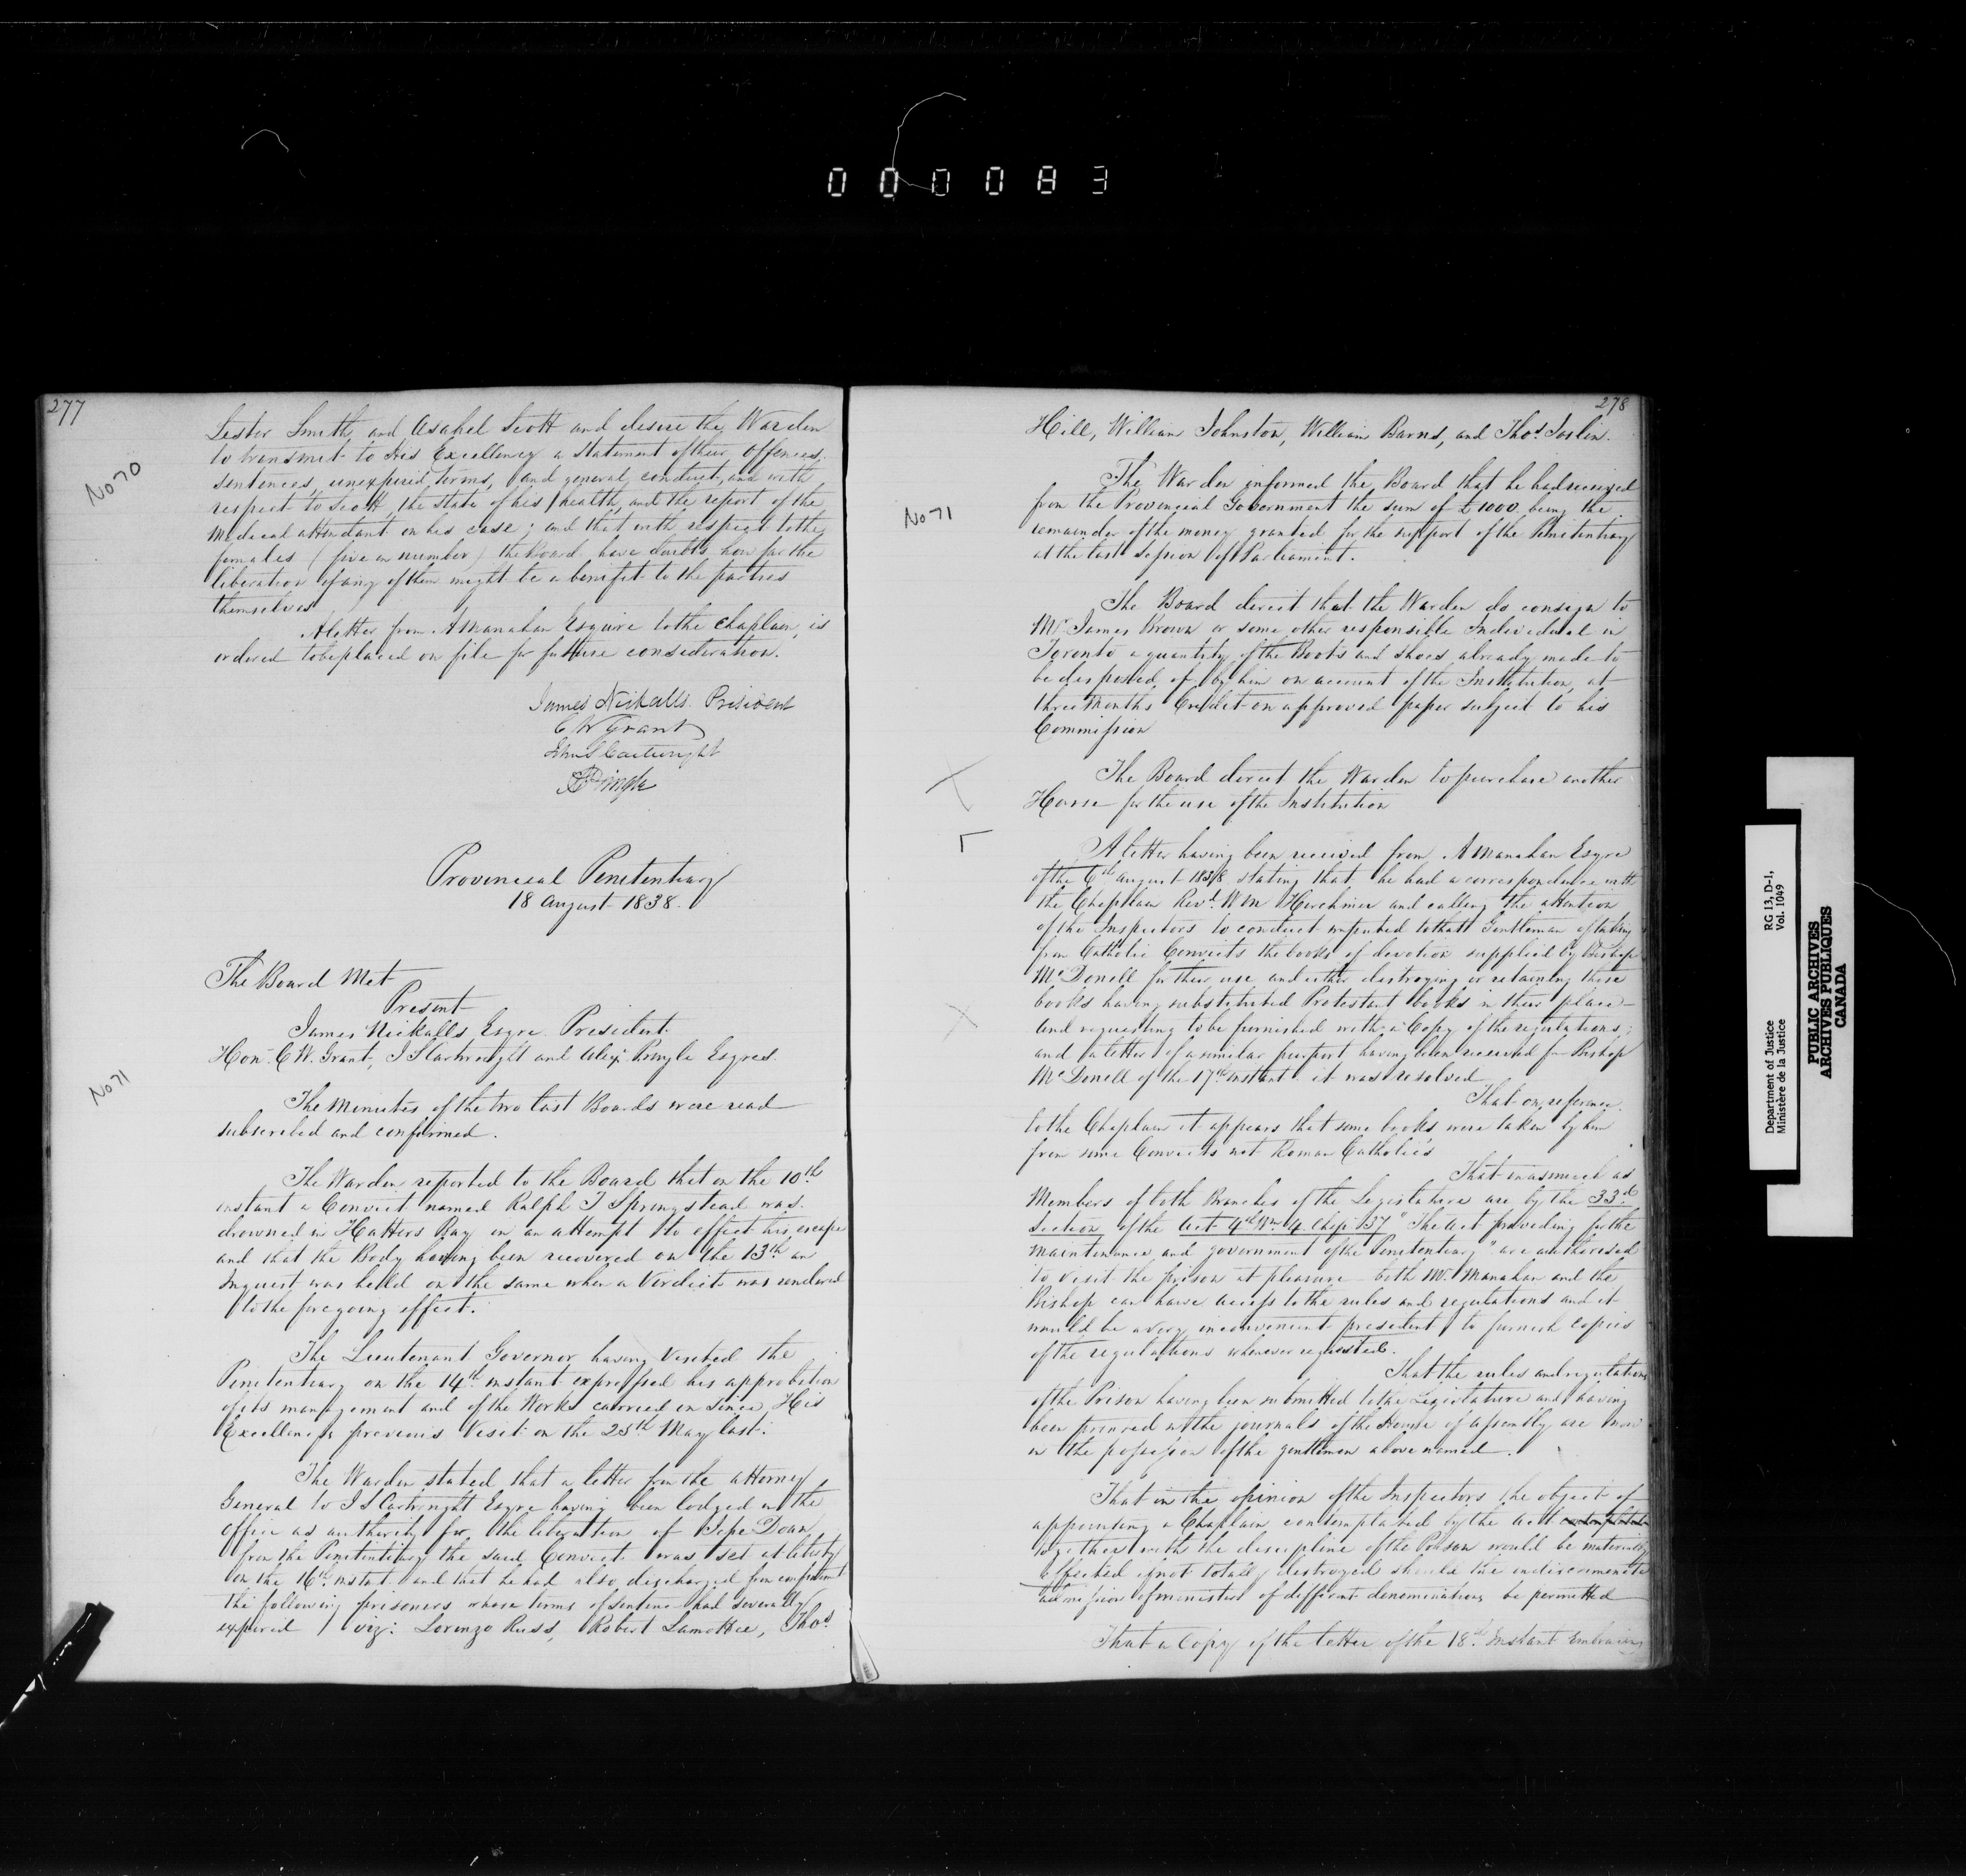 000083
277
No 70
Lester Smith, and Asahel Scott and desire the Warden
to transmit to His Excellency a Statement of their offences,
sentences, unexpired terms, and general conduct, and with
respect to Scott, the state of his health, and the report of the
Medical attendant on his case; and that with respect to the
females (five in number) the Board have doubts how far the
liberation of any of them might be a benifit to the parties
themselves
A letter from A Manahan Esquire to the Chaplain, is
ordered to be placed on file for future consideration.
James Nickalls President
C W Grant
John S Cartwright
A Pringle
Provincial Penitentiary
18 August 1838.
The Board Met
Present
James Nickalls Esqre President
Honl. C W. Grant, J S Cartwright and Alexr. Pringle Esqres.
No 71
The Minutes of the two last Boards were read
subscribed and confirmed.
The Warden reported to the Board that on the 10th
instant a Convict named Ralph T Springstead was
drowned in Hatters Bay in an attempt to effect his escape
and that the Body having been recovered on the 13th an
Inquest was held on the same when a Verdict was rendered
to the foregoing effect.
The Lieutenant Governor having Visited the
Penitentiary on the 14th instant expressed his approbation
of its management and of the Works carried on since His
Excellency's previous Visit on the 25th May last.
The Warden stated that a letter from the Attorney
General to J S Cartwright Esqre having been lodged in the
Office as authority for the liberation of Doan
from the Penitentiary the said Convict was set at liberty
on the 16th instant and that he had also discharged from confinement
the following prisoners whose terms of sentence had severally
expired viz: Lorenzo Russ, Robert Lamottee, Thos.
278
Hill, William Johnston, William Barns, and Thos. Joslin.
No 71
The Warden informed the Board that he had received
from the Provincial Government the sum of £1000 being the
remainder of the money granted for the support of the Penitentiary
at the last Session of Parliament.
The Board direct that the Warden do consign to
Mr. James Brown or some other responsible Individual in
Toronto a quantity of the Boots and Shoes already made to
be disposed of by him on account of the Institution, at
three Months Credit on approved paper subject to his
Commission
The Board direct the Warden to purchase another
Horse for the use of the Institution
A letter having been received from A Manahan Esqre
of the 6th August 1838 stating that he had a correspondence with
the Chaplain Revd. W M Herchmer and calling the attention
of the Inspectors to conduct imputed to that Gentleman of taking
from Catholic Convicts the books of devotion supplied by Bishop
McDonell for their use and either destroying or retaining these
books having substituted Protestant books in their place
and requesting to be furnished with a Copy of the regulations;
and a letter of a similar purport having been received fm Bishop
McDonell of the 17th instant it was resolved
That on reference
to the Chaplain it appears that some books were taken by him
from some Convicts not Roman Catholics
That inasmuch as
Members of both Branches of the Legislature are by the 33d.
Section of the Act 4th Wm 4 Chap: 37 "The Act providing for the
maintenance and government of the Penitentiary" are authorised
to visit the prison at pleasure both Mr. Manahan and the
Bishop can have access to the rules and regulations and it
would be a very inconvenient president to furnish copies
of the regulations whenever requested.
That the rules and regulations
of the Prison having been submitted to the Legislature and having
been printed in the journals of the House of Assembly are now
in the possession of the gentlemen above named.
That in the opinion of the Inspectors the object of
appointing a Chaplain contemplated by the Act contemplated
together with the discipline of the Prison would be materially
effected if not totally destroyed should the indiscriminate
admission of ministers of different denominations be permitted
That a Copy of the letter of the 18th Instant Embracing
Department of Justice RG 13, D-1,
Ministère de la Justice Vol. 1049
PUBLIC ARCHIVES
ARCHIVES PUBLIQUES
CANADA